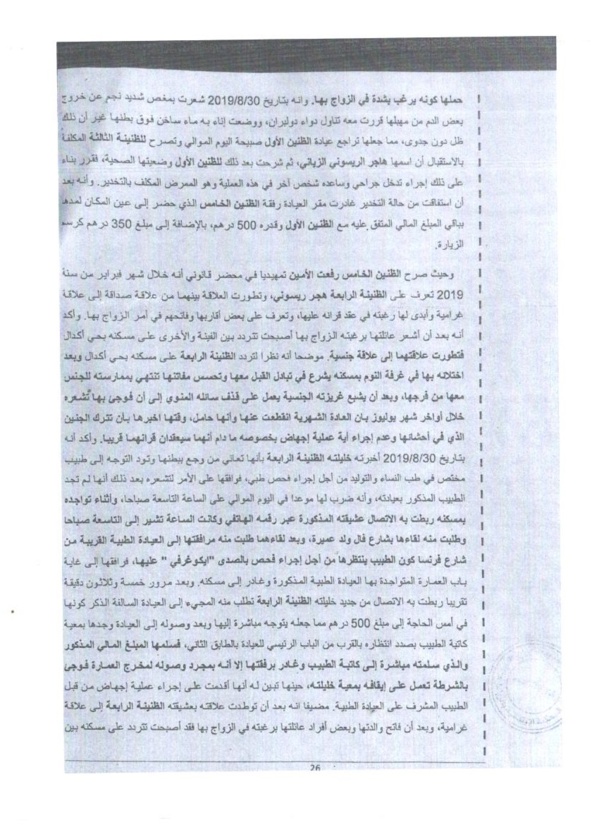 حملها كونه يرغب بشدة في الزواج بها. وانه بتاريخ 2019/8/30 شعرت بمغص شديد نجم عن خروج
بعض الدم من مهبلها قررت معه تناول دواء دوليبران، ووضعت إناء به ماء ساخن فوق بطنها غير أن ذلك
ظل دون جدوى، مما جعلها تراجع عيادة الظنين الأول صبيحة اليوم الموالي وتصرح للظنينة الثالثة المكلفة
بالاستقبال أن اسمها هاجر الريسوني الزياني، ثم شرحت بعد ذلك للظنين الأول وضعيتها الصحية، فقرر بناء
على ذلك إجراء تدخل جراحي وساعده شخص آخر في هذه العملية وهو الممرض المكلف بالتخدير. وأنه بعد
أن استفاقت من حالة التخدير غادرت مقر العيادة رفقة الظنين الخامس الذي حضر إلى عين المكان لمدها
بباقي المبلغ المالي المتفق عليه مع الظنين الأول وقدره 500 درهم، بالإضافة إلى مبلغ 350 درهم كرسم
الزيارة.
وحيث صرح الظنين الخامس رفعت الأمين تمهيديا في محضر قانوني أنه خلال شهر فبراير من سنة
2019 تعرف على الظنينة الرابعة هجر ريسوني، وتطورت العلاقة بينهما من علاقة صداقة إلى علاقة
غرامية وأبدى لها رغبته في عقد قرانه عليها، وتعرف على بعض أقاربها وفاتحهم في أمر الزواج بها. وأكد
أنه بعد أن أشعر عائلتها برغبته الزواج بها أصبحت تتردد بين الفينة والأخرى على مسكنه بحي أكدال
فتطورت علاقتهما إلى علاقة جنسية. موضحا أنه نظرا لتردد الظنينة الرابعة على مسكنه بحي أكدال وبعد
اختلائه بها في غرفة النوم بمسكنه يشرع في تبادل القبل معها وتحسس مفاتنها تنتهي بممارسته للجنس
معها من فرجها، وبعد أن يشبع غريزته الجنسية يعمل على قذف سائله المنوي إلى أن فوجئ بها تشعره
خلال أواخر شهر يوليوز بان العادة الشهرية انقطعت عنها وأنها حامل، وقتها اخبرها بأن تترك الجنين
الذي في أحشائها وعدم إجراء أية عملية إجهاض بخصوصه ما دام أنهما سيعقدان قرانهما قريبا. وأكد أنه
بتاريخ 2019/8/30 أخبرته خليلته الظنينة الرابعة بأنها تعاني من وجع ببطنها وتود التوجه إلى طبيب
مختص في طب النساء والتوليد من أجل إجراء فحص طبي، فوافقها على الأمر لتشعره بعد ذلك أنها لم تجد
الطبيب المذكور بعيادته، وأنه ضرب لها موعدا في اليوم الموالي على الساعة التاسعة صباحا، وأثناء تواجده
بمسكنه ربطت به الاتصال عشيقته المذكورة عبر رقمه الهاتفي وكانت الساعة تشير إلى التاسعة صباحا
وطلبت منه لقاءها بشارع فال ولد عميرة، وبعد لقاءهما طلبت منه مرافقتها إلى العيادة الطبية القريبة من
شارع فرنسا كون الطبيب ينتظرها من أجل إجراء فحص بالصدى "ايكوغرفي" عليها، فرافقها إلى غاية
باب العمارة المتواجدة بها العيادة الطبية المذكورة وغادر إلى مسكنه. وبعد مرور خمسة وثلاثون دقيقة
تقريبا ربطت به الاتصال من جديد خليلته الظنينة الرابعة تطلب منه المجيء إلى العيادة السالفة الذكر كونها
في أمس الحاجة إلى مبلغ 500 درهم مما جعله يتوجه مباشرة إليها وبعد وصوله إلى العيادة وجدها بمعية
كاتبة الطبيب بصدد انتظاره بالقرب من الباب الرئيسي للعيادة بالطابق الثاني، فسلمها المبلغ المالي المذكور
والذي سلمته مباشرة إلى كاتبة الطبيب وغادر برفقتها إلا أنه بمجرد وصوله لمخرج العمارة فوجئ
بالشرطة تعمل على إيقافه بمعية خليلته، حينها تبين له أنها أقدمت على إجراء عملية إجهاض من قبل
الطبيب المشرف على العيادة الطبية. مضيفا انه بعد أن توطدت علاقته بعشيقته الظنينة الرابعة إلى علاقة
غرامية، وبعد أن فاتح والدتها وبعض أفراد عائلتها برغبته في الزواج بها فقد أصبحت تتردد على مسكنه بين
26